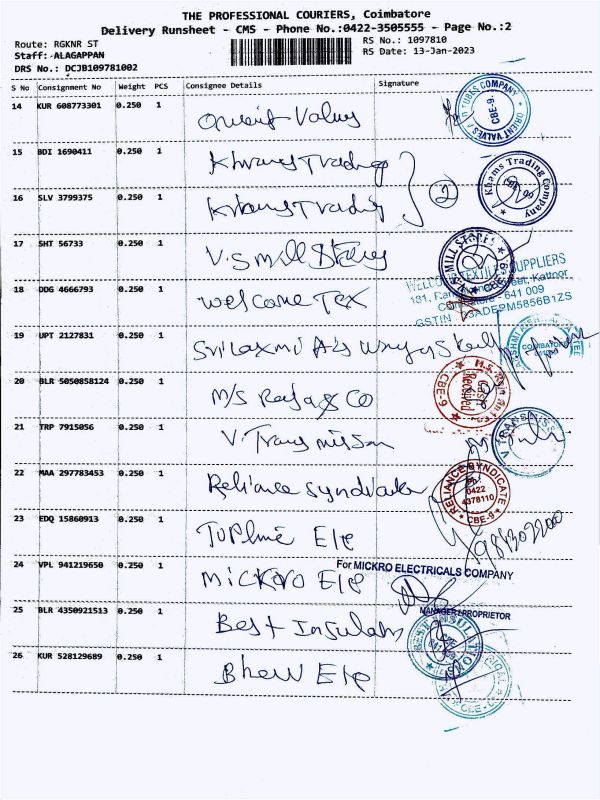 THE PROFESSIONAL COURIERS, Coimbatore
Delivery Runsheet - CMS - Phone No.:0422-3505555 - Page No.:2
Route: RGKNR ST
RS No.: 1097810
Staff: ALAGAPPAN
RS Date: 13-Jan-2023
DRS No.: DCJB109781002
S No Consignment No Weight PCS Consignee Details Signature
14 KUR 608773301 0.250 1 Orient Valves
15 BDI 1690411 0.250 1 Khams Trading
2
16 SLV 3799375 0.250 1 Khams Trading
Khams Trading Company
17 SHT 56733 0.250 1 V.S Mill Stores
V.S. MILL STORES CBE-9
18 DDG 4666793 0.250 1 Welcome Tex
WELCOME TEXTILE SUPPLIERS
Street, Kattoor
Coimbatore - 641 009
19 UPT 2127831 0.250 1 Sri Laxmi
20 BLR 5050858124 0.250 1 M/S Raja & Co
CBE-9
Received
21 TRP 7915056 0.250 1 V. Transmission
22 MAA 297783453 0.250 1 Reliance Syndicate
RELIANCE SYNDICATE
0422
4378110
CBE-9
23 EDQ 15860913 0.250 1 Topline Ele
24 VPL 941219650 0.250 1 Mickro Ele
For MICKRO ELECTRICALS COMPANY
MANAGER / PROPRIETOR
25 BLR 4350921513 0.250 1 Best Insulation
26 KUR 528129689 0.250 1 Ele
CBE-